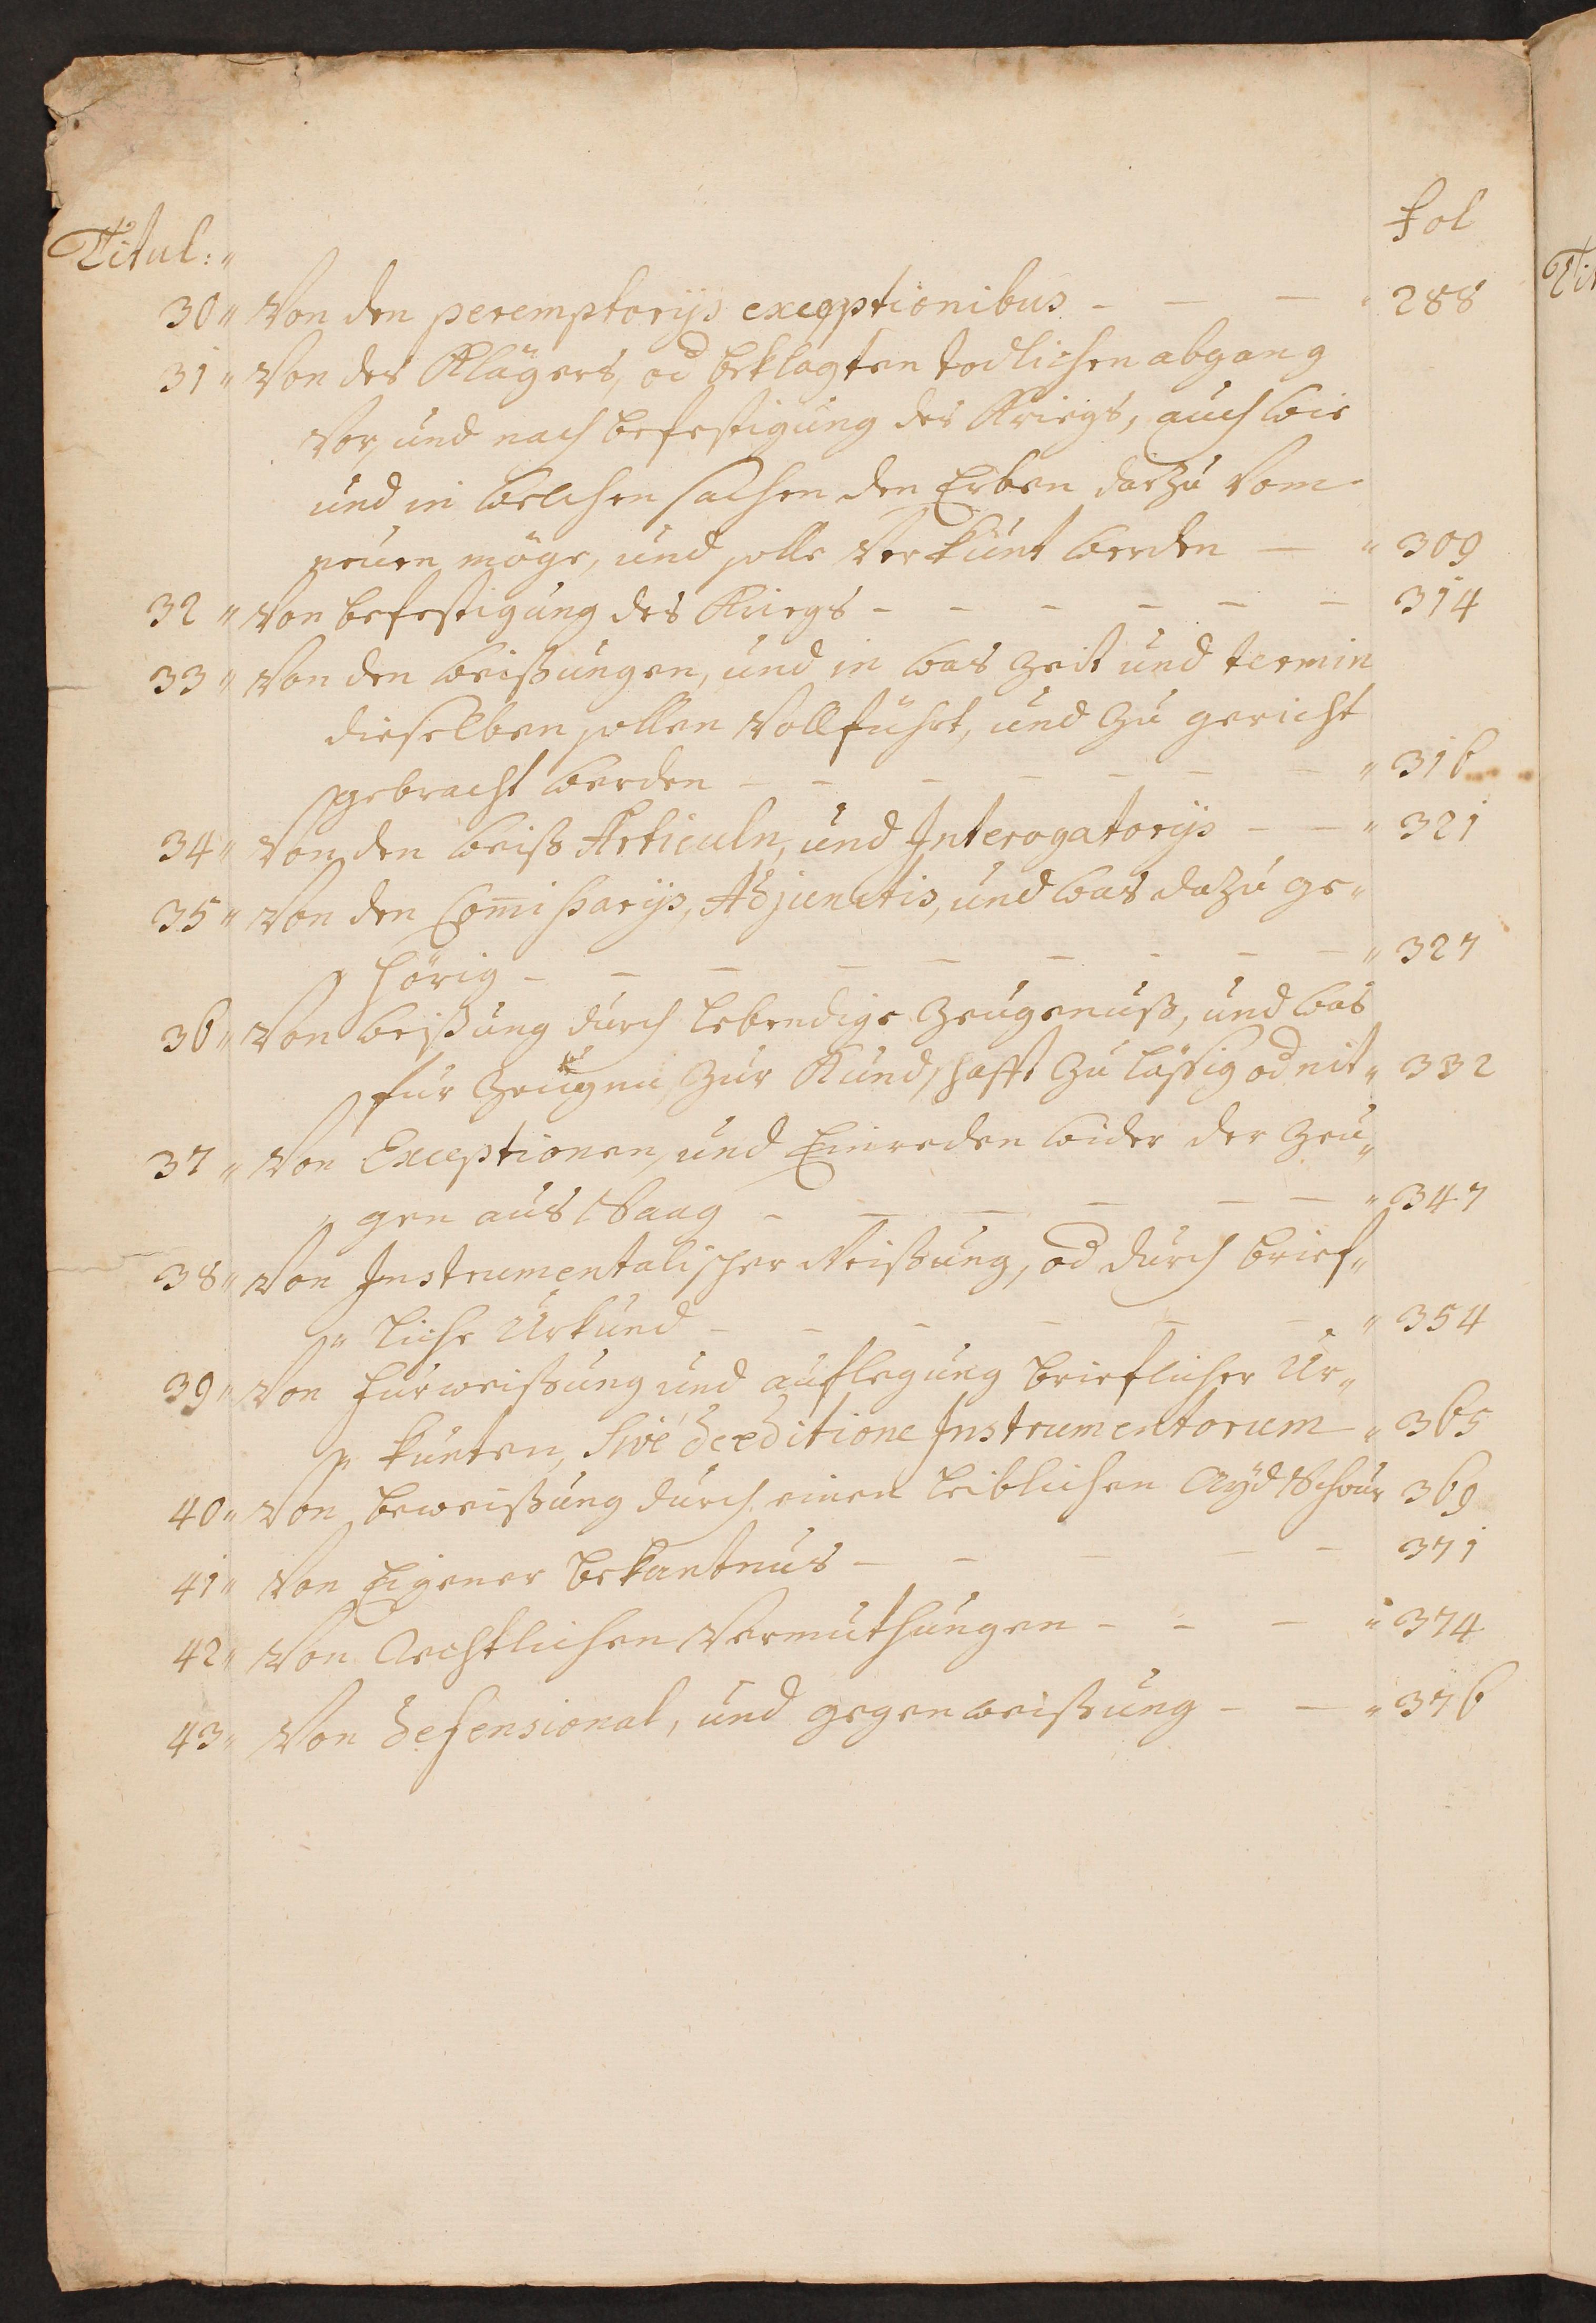 fol
Titul:"
30" Von den peremptorijs execptionibus - — — " 288
31" Von des Klägers, od beklagten todlichen abgang
Vor, und nach befestigung des Kriegs, auch wie
und in welchen sachen den Erben darzu Vom
neuen möge, und solle Verkünt werden — " 309
32" Von befestigung des Kriegs - - - - - — 314
33" Von den weißungen, und in was Zeit und termin
dieselben sollen Vollführt, und Zu gericht
gebracht werden - - - - - - — " 316
34" Von den weiß Articuln, und Interogatorijs - — " 321
35" Von den Com̄issarijs, Adjunctis, und was dazu ge„
hörig - - - - - - - - — " 327
36" Von weißung durch lebendige Zeugenuß, und was
für Zeugnu, Zur Kundschafft Zu läßig od nit " 332
37" Von Exceptionen, und Einreden wider der Zeu„
gen aus Saag - - - - - — " 347
38" Von Instrumentalischer Weißung, od durch brief„
" liche Urkund - - - - - - " 354
39" Von fürweißung und auflegung brieflicher Ur„
" kunten, Sivé de editione Instrumentorum " 365
40" Von beweißung durch einen leiblichen Aÿd Schwur 369
41" Von Eigener bekantnus — - - - - 371
42" Von Rechtlichen Vermuthungen - - — " 374
43" Von defensional, und gegenweißung - — " 376
Tit